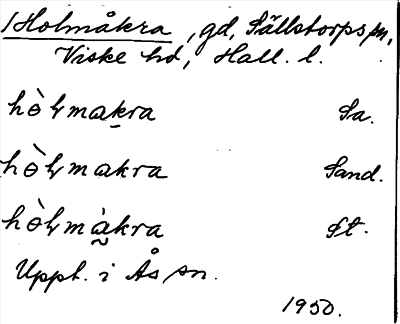 Holmåkra, gd, Sällstorps sn,
Viske hd, Hall. l.
hòɫmakra Sa.
hòɫmakra Sand.
hòɫmàkra St.
Uppt. i Ås sn.
1950.